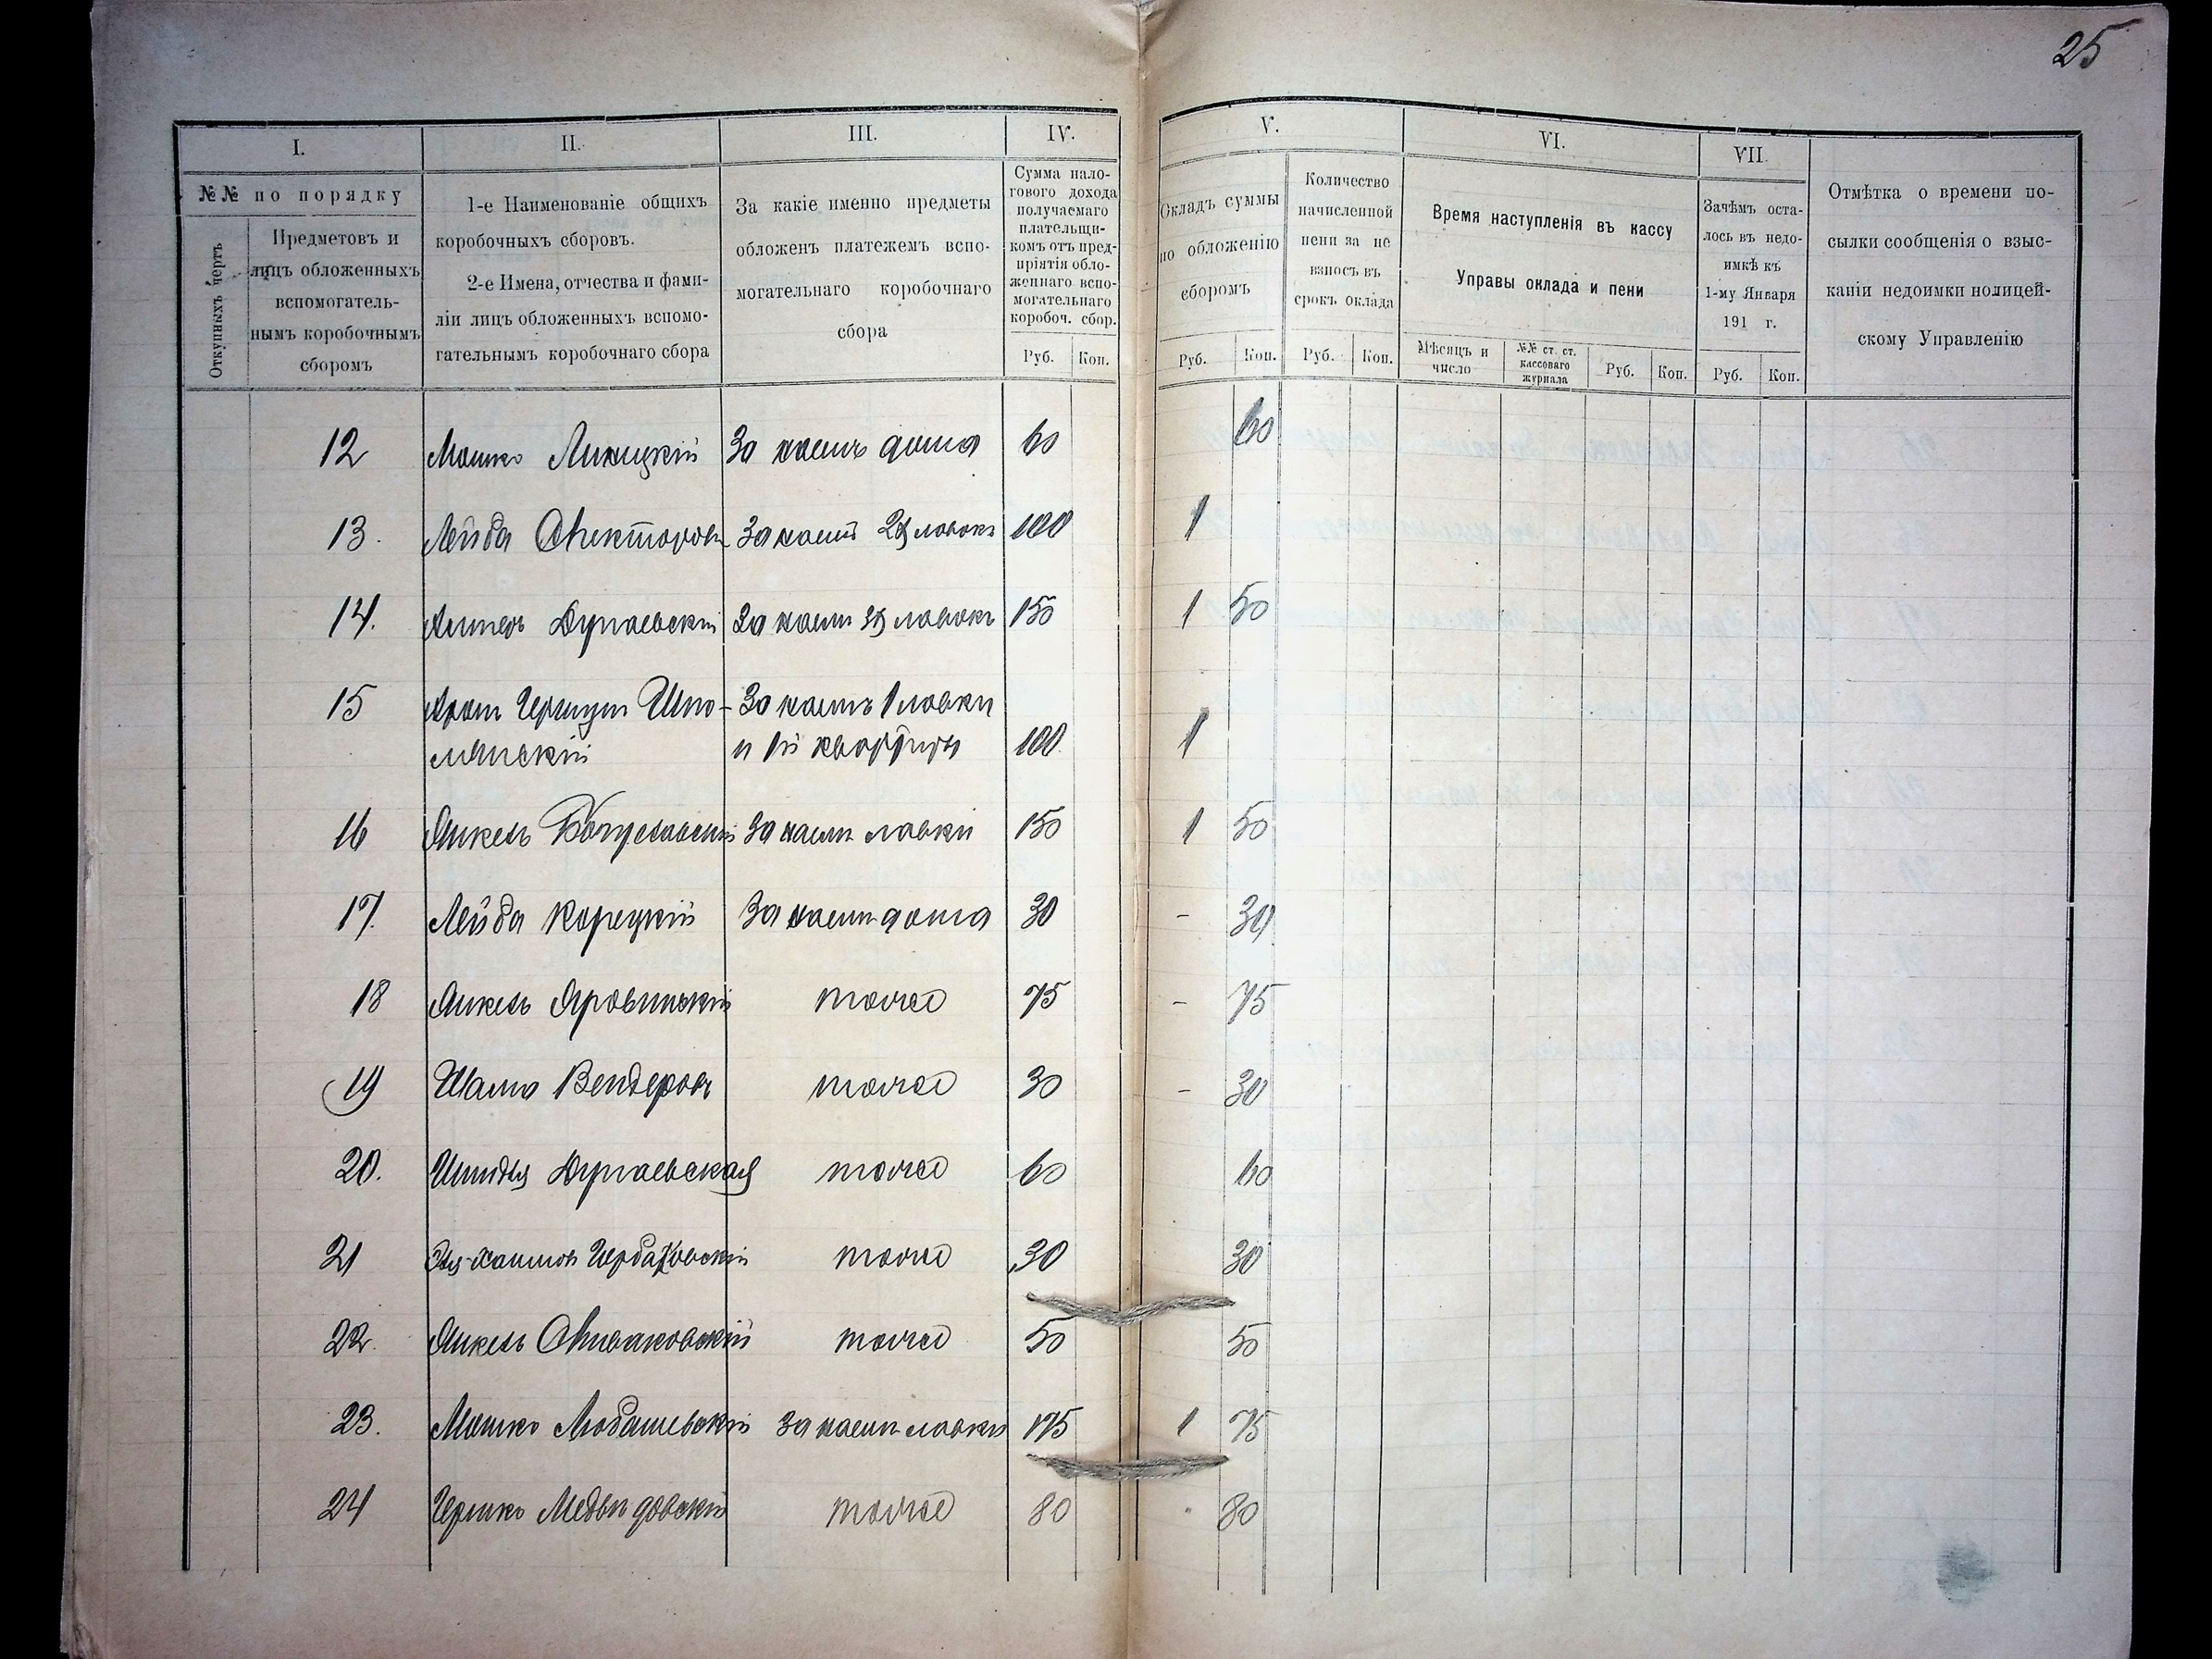 25
I.
II.
III.
IV.
V.
VI.
VII.
№№ по порядку
Откупныхъ чертъ
Предметовъ и
лицъ обложенныхъ
вспомогатель-
нымъ коробочнымъ
сборомъ
1-е Наименованіе общихъ
коробочныхъ сборовъ.
2-е Имена, отчества и фами-
ліи лицъ обложенныхъ вспомо-
гательнымъ коробочнаго сбора
За какіе именно предметы
обложенъ платежемъ вспо-
могательнаго коробочнаго
сбора
Сумма нало-
говаго дохода
получаемаго
плательщи-
комъ отъ пред-
пріятія обло-
женнаго вспо-
могательнаго
коробоч. сбор.
Руб. Коп.
Окладъ суммы
по обложенію
сборомъ
Руб. Коп.
Количество
начисленной
пени за не
взносъ въ
срокъ оклада
Руб. Коп.
Время наступленія въ кассу
Управы оклада и пени
Мѣсяцъ и
число
№№ ст. ст.
кассоваго
журнала
Руб. Коп.
Зачѣмъ оста-
лось въ недо-
имкѣ къ
1-му Января
191 г.
Руб. Коп.
Отмѣтка о времени по-
сылки сообщенія о взыс-
каніи недоимки полицей-
скому Управленію
12 Мошко За наемъ дома 60 60
13. Лейба Спекторовъ За наемъ 2х лавокъ 100 1
14. Дунаевскій За наемъ 3х лавокъ 150 1 50
15 Аронъ Гершунъ Шпо- За наемъ 1 лавки
лянскій и 1й квартиры 100 1
16 Янкель Богуславскій За наемъ лавки 150 1 50
17. Лейба Корецкій За наемъ дома 30 - 30
18 Янкель тоже 75 - 75
19 Бендеровъ тоже 30 - 30
20. Дунаевская тоже 60 60
21 тоже 30 30
22. Янкель Спиваковскій тоже 50 50
23. Мошко Любашевскій За наемъ лавки 175 1 75
24 Гершко Медвидовскій тоже 80 " 80